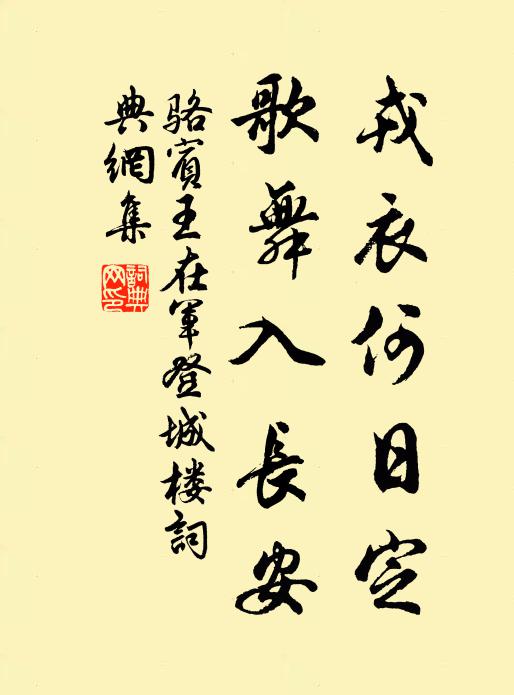 戎衣何日定
歌舞入長安
骆賓王在軍登城楼詞
典網集
詞典
网印